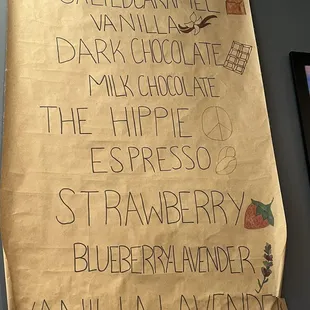 SALTED CARAMEL
VANILLA
DARK CHOCOLATE
MILK CHOCOLATE
THE HIPPIE
ESPRESSO
STRAWBERRY
BLUEBERRY-LAVENDER
VANILLA LAVENDER